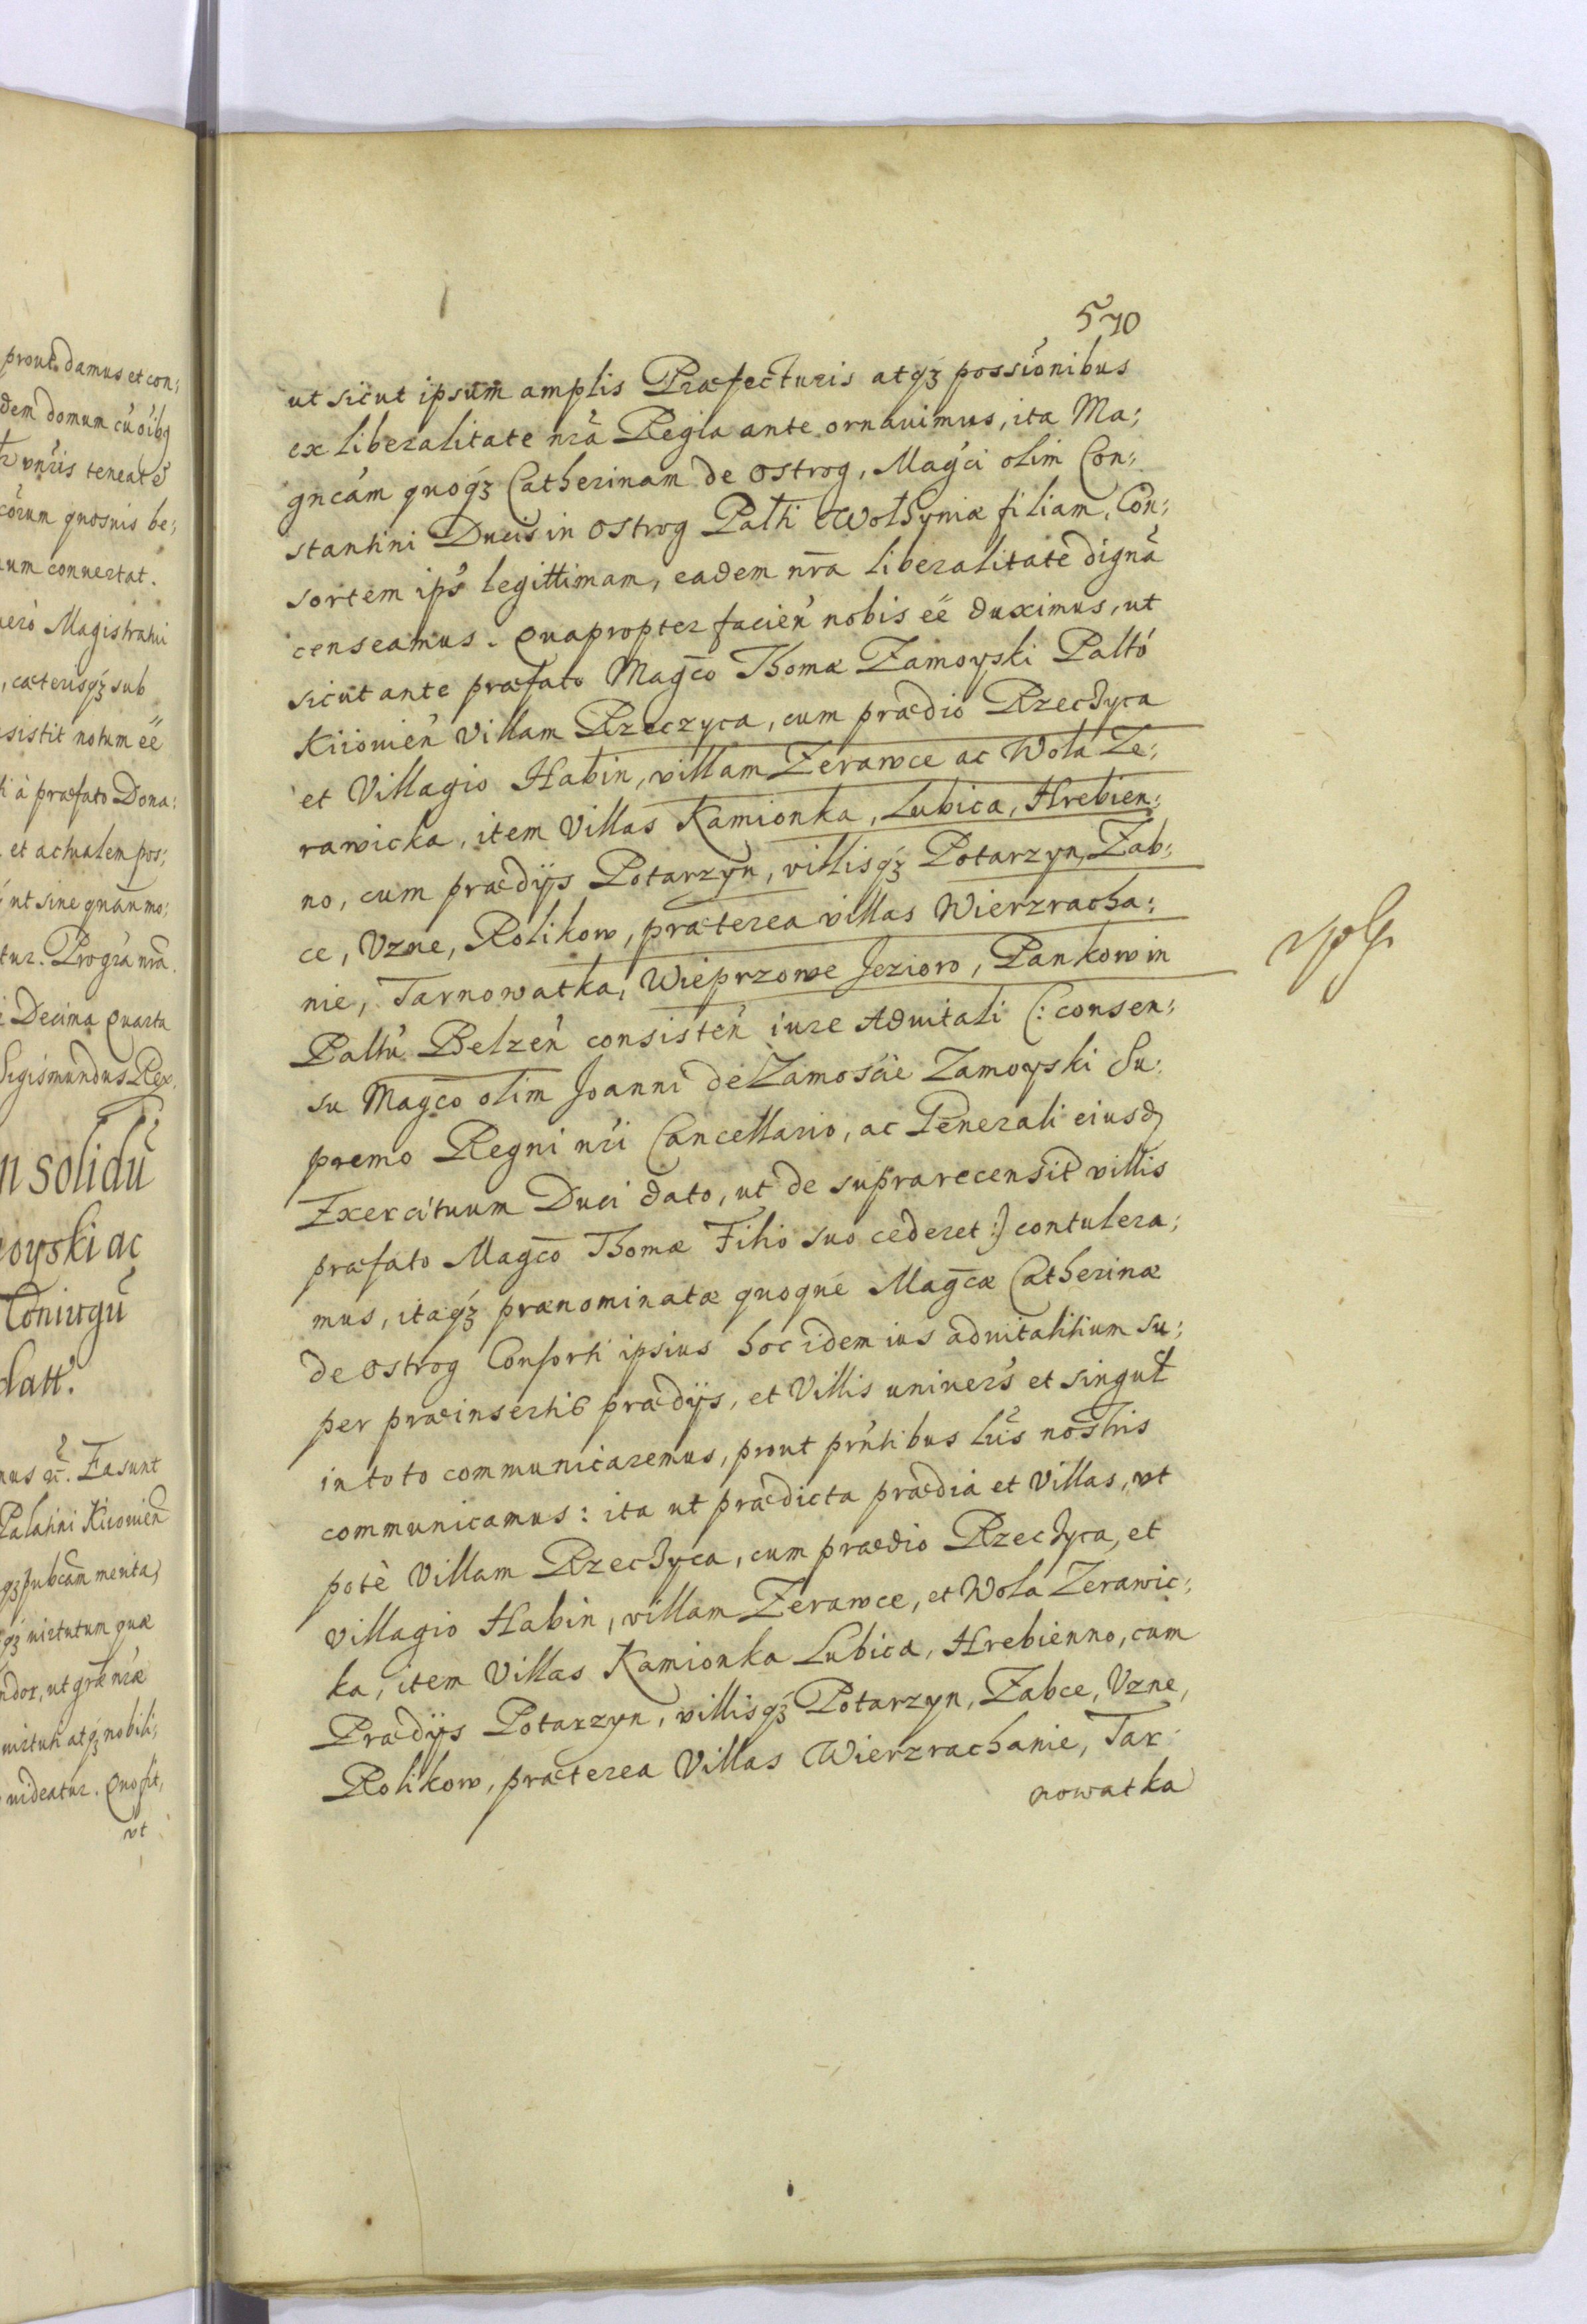 prout damus et con;
dem domum cu oibg
vnris teneate
corum quosuis be;
um conuertat.
uero Magistratui
, cæterisqz sub
sistit notum eë
ti à præfato Dona:
et actualem pos;
ut sine quan mo:
tur. Progra nra.
i Decima Quarta
Sigismundus Rex.
n solidu
oyski ac
Coniugu
latt.
mus ec. Ea sunt
Palatini Kiiouien
qz subcam merita,
qz uirtutum quæ
ndor, ut græ nræ
uirtuti atqz nobili;
uideatur. Quo fit,
vt
570
ut sicut ipsum amplis Præfecturis atqz possionibus
ex liberalitate nra Regia ante ornauimus, ita Ma;
gncam quoqz Catherinam de Ostrog, Magci olim Con;
stantini Ducis in Ostrog Palti Wolhyniæ filiam, Con;
sortem ips legittimam, eadem nra liberalitate digna
censeamus. Quapropter facien nobis eë duximus, ut
sicut ante præfato Magco Thomæ Zamoyski Palto
Kiiouien Villam Rzeczyca, cum prædio Rzeczyca
et Villagio Habin, villam Zerawce ac Wola Ze;
rawicka, item Villas Kamionka, Lubica, Hrebien;
no, cum prædijs Potarzyn, villisqz Potarzyn, Zab;
ce, Vzne, Rolikow, præterea villas Wierzracha;
nie, Tarnowatka, Wieprzowe Jezioro, Pankow in
Paltu Belzen consisten iure Aduitali (: consen;
su Magco olim Joanni de Zamoscie Zamoyski Su;
premo Regni nri Cancellario, ac Generali eiusd
Exercituum Duci dato, ut de suprarecensit villis
præfato Magco Thomæ Filio suo cederet :) contulera;
mus, itaqz prænominatæ quoque Magcæ Catherinæ
de Ostrog Consorti ipsius hoc idem ius aduitalitium su;
per præinsertis prædijs, et Villis uniuers et singul
in toto communicaremus, prout prntibus lris nostris
communicamus: ita ut prædicta prædia et Villas, vt
potè Villam Rzeczyca, cum prædio Rzeczyca, et
villagio Habin, villam Zerawce, et Wola Zerawic;
ka, item Villas Kamionka Lubica, Hrebienno, cum
Prædijs Potarzyn, villisqz Potarzyn, Zabce, Vzne,
Rolikow, præterea Villas Wierzrachanie, Tar
nowatka